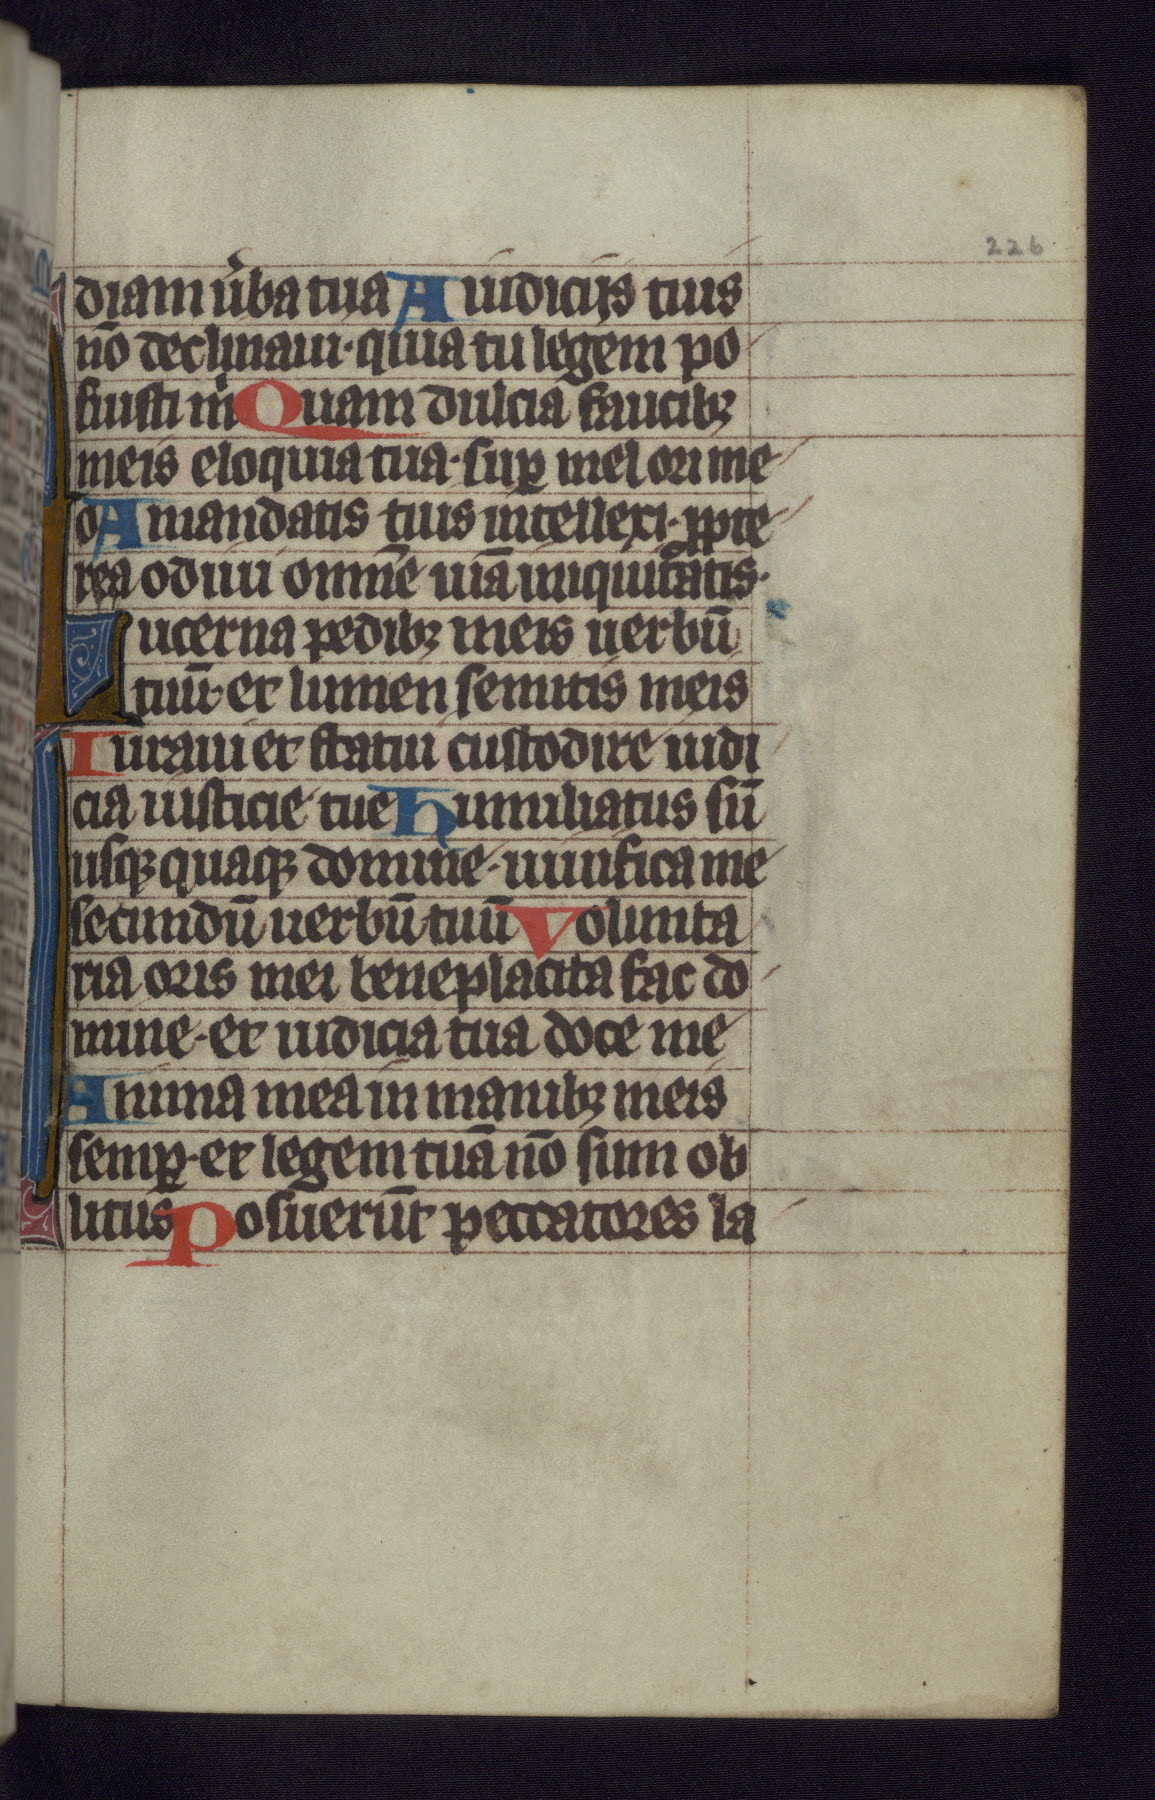 226
diam ũba tua A iudicijs tuis
nō declinaui · quia tu legem po
suisti m̃ Quam dulcia faucibꝫ
meis eloquia tua · suꝑ mel ori me
o A mandatis tuis intellexi · ꝓpte
rea odiui omnē uiā iniquitatis ·
Lucerna pedibꝫ meis uerbū
tuū · et lumen semitis meis
Iuraui et statui custodire iudi
cia iusticie tue Humiliatus sū
usqꝫ quaqꝫ domine · uiuifica me
secundū uerbū tuū Volunta
ria oris mei beneplacita fac do
mine · et iudicia tua doce me
Anima mea in manibꝫ meis
semꝑ · et legem tuā nō sum ob
litus Posuerūt peccatores la